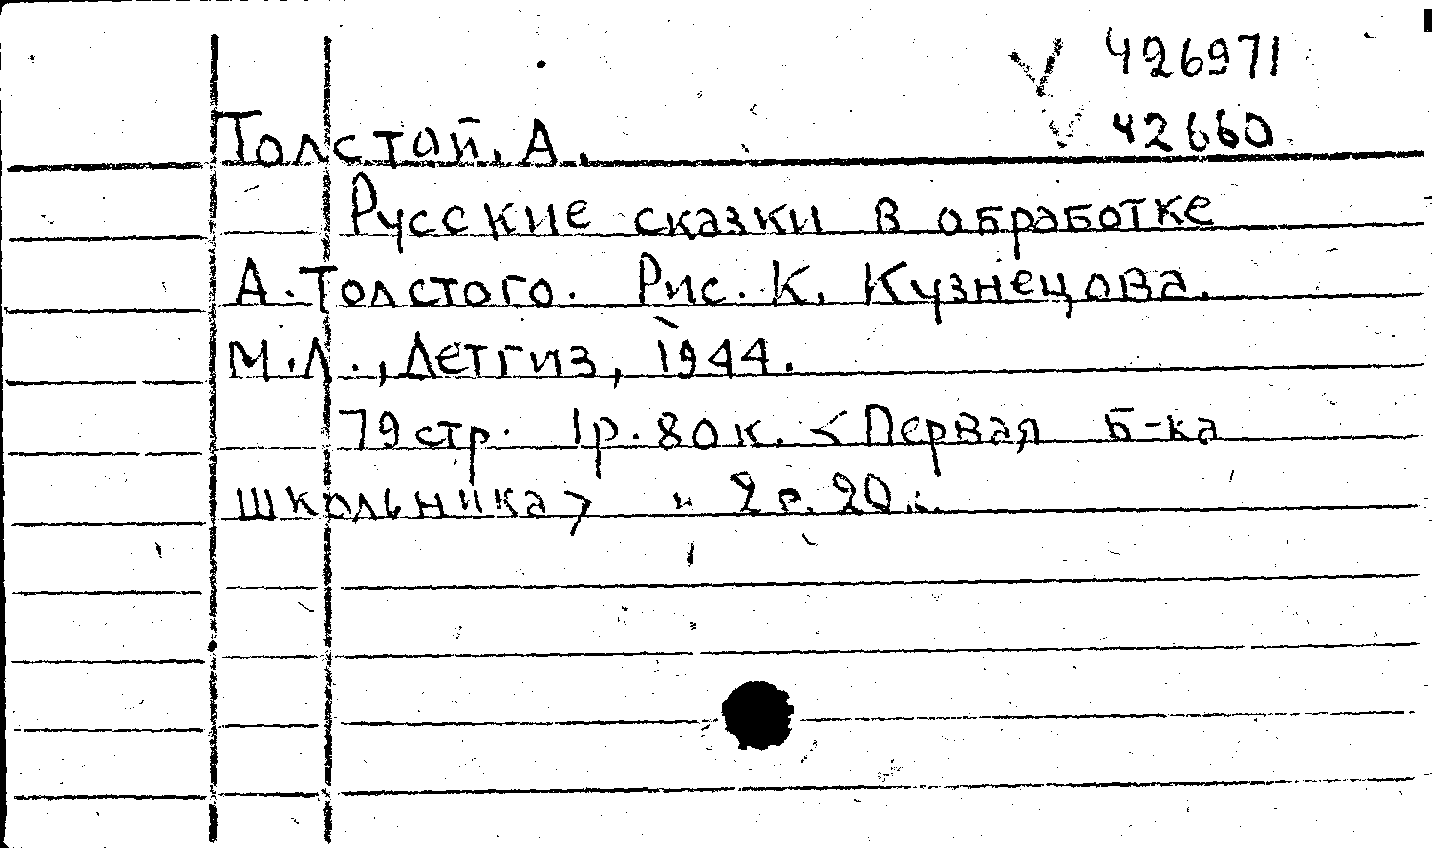 V 426971
V 42660
Толстой, А.
Русские сказки в обработке
А. Толстого. Рис. К. Кузнецова.
М.Л., Детгиз, 1944.
79 стр. 1р. 80к. < Первая б-ка
школьника> " 2 р. 20 к.